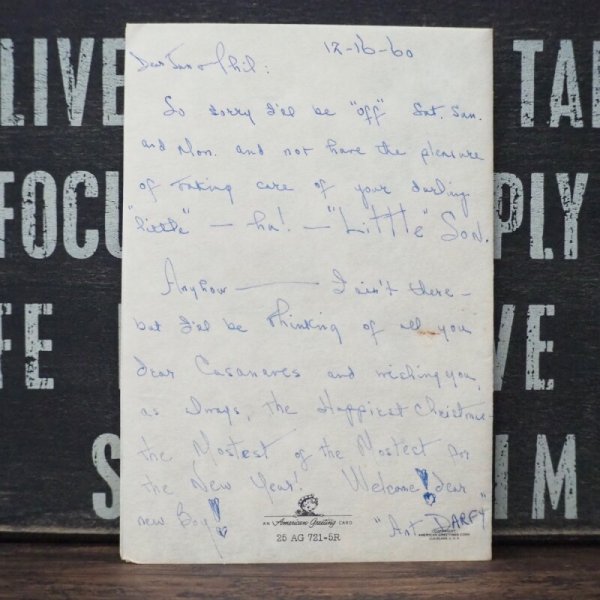 LIVE
TAI
FOCU
PLY
FE
VE
S
IM
12-16-60
Dear Jan & Phil:
So sorry I'll be "off" Sat. Sun.
and Mon. and not have the pleasure
of taking care of your darling
"little" — ha! — "Little" Son.
Anyhow — I ain't there —
but I'll be thinking of all you
dear Casanaves and wishing you,
as always, the Happiest Christmas
the Mostest of the Mostest for
the New Year! Welcome! dear
new Boy!
"Ant. DARFY"
AN American Greeting CARD
25 AG 721-5R
AMERICAN GREETINGS CORP.
CLEVELAND U.S.A.